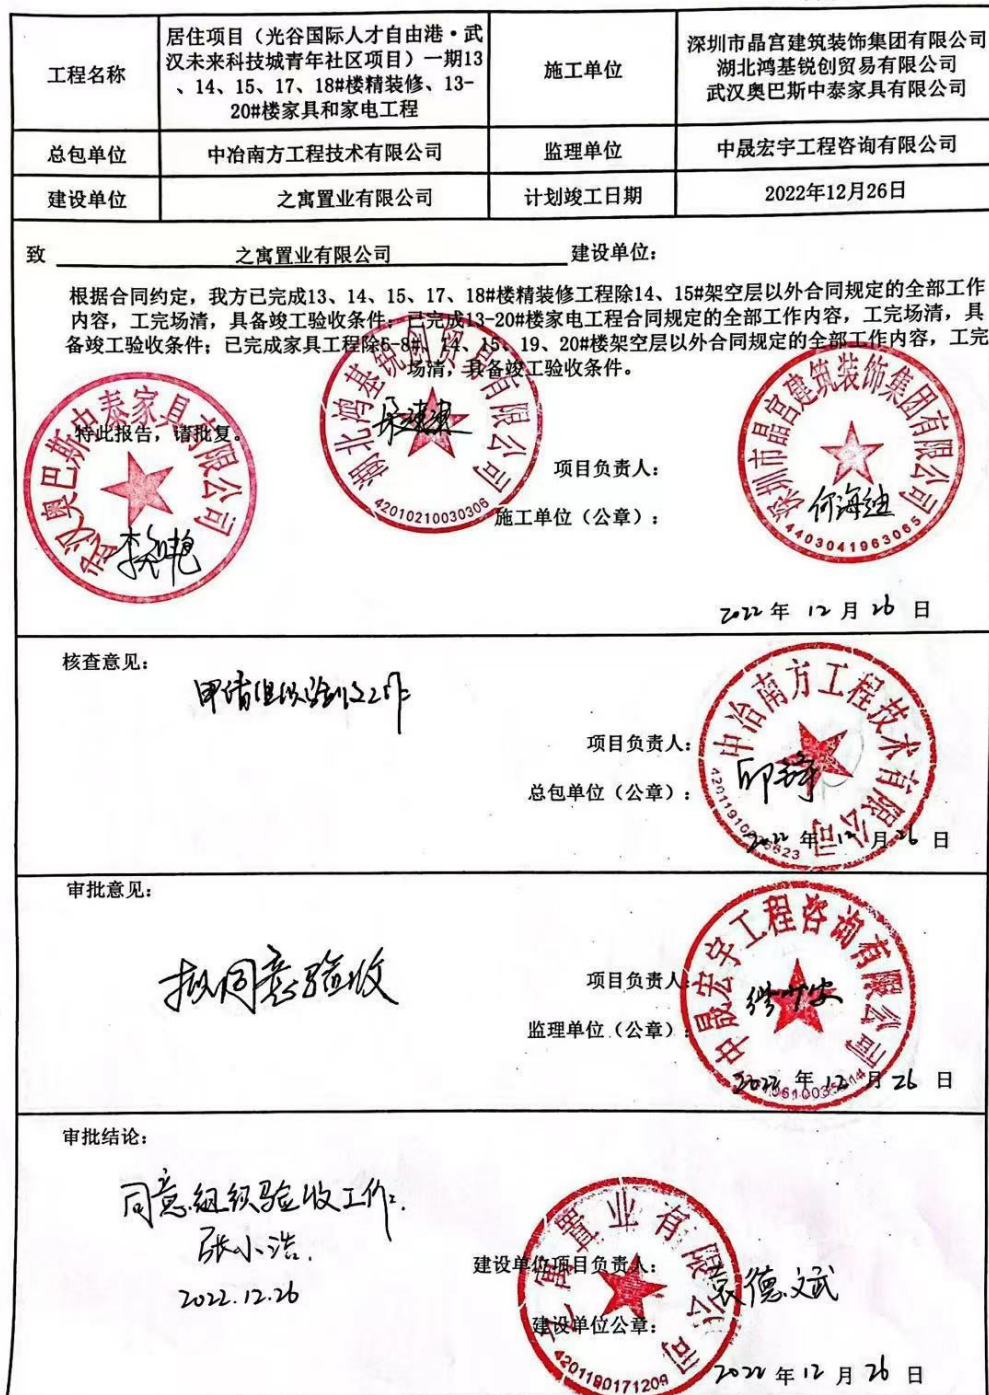 工程名称
居住项目（光谷国际人才自由港·武
汉未来科技城青年社区项目）一期13
、14、15、17、18#楼精装修、13-
20#楼家具和家电工程
施工单位
深圳市晶宫建筑装饰集团有限公司
湖北鸿基锐创贸易有限公司
武汉奥巴斯中泰家具有限公司
总包单位
中冶南方工程技术有限公司
监理单位
中晟宏宇工程咨询有限公司
建设单位
之寓置业有限公司
计划竣工日期
2022年12月26日
致 之寓置业有限公司 建设单位：
根据合同约定，我方已完成13、14、15、17、18#楼精装修工程除14、15#架空层以外合同规定的全部工作
内容，工完场清，具备竣工验收条件；已完成13-20#楼家电工程合同规定的全部工作内容，工完场清，具
备竣工验收条件；已完成家具工程除6-8#、14、15、19、20#楼架空层以外合同规定的全部工作内容，工完
场清，具备竣工验收条件。
特此报告，请批复。
武汉奥巴斯中泰家具有限公司
湖北鸿基锐创贸易有限公司
42010210030306
深圳市晶宫建筑装饰集团有限公司
4403041963065
何海迪
项目负责人：
施工单位（公章）：
2022 年 12 月 26 日
核查意见：
申请组织验收工作
项目负责人：
总包单位（公章）：
中冶南方工程技术有限公司
2022 年 12 月 26 日
审批意见：
拟同意验收
项目负责人
监理单位（公章）
中晟宏宇工程咨询有限公司
2022 年 12 月 26 日
审批结论：
同意组织验收工作.
张小浩.
2022.12.26
建设单位项目负责人：
袁德斌
建设单位公章：
之寓置业有限公司
4201190171209
2022 年 12 月 26 日